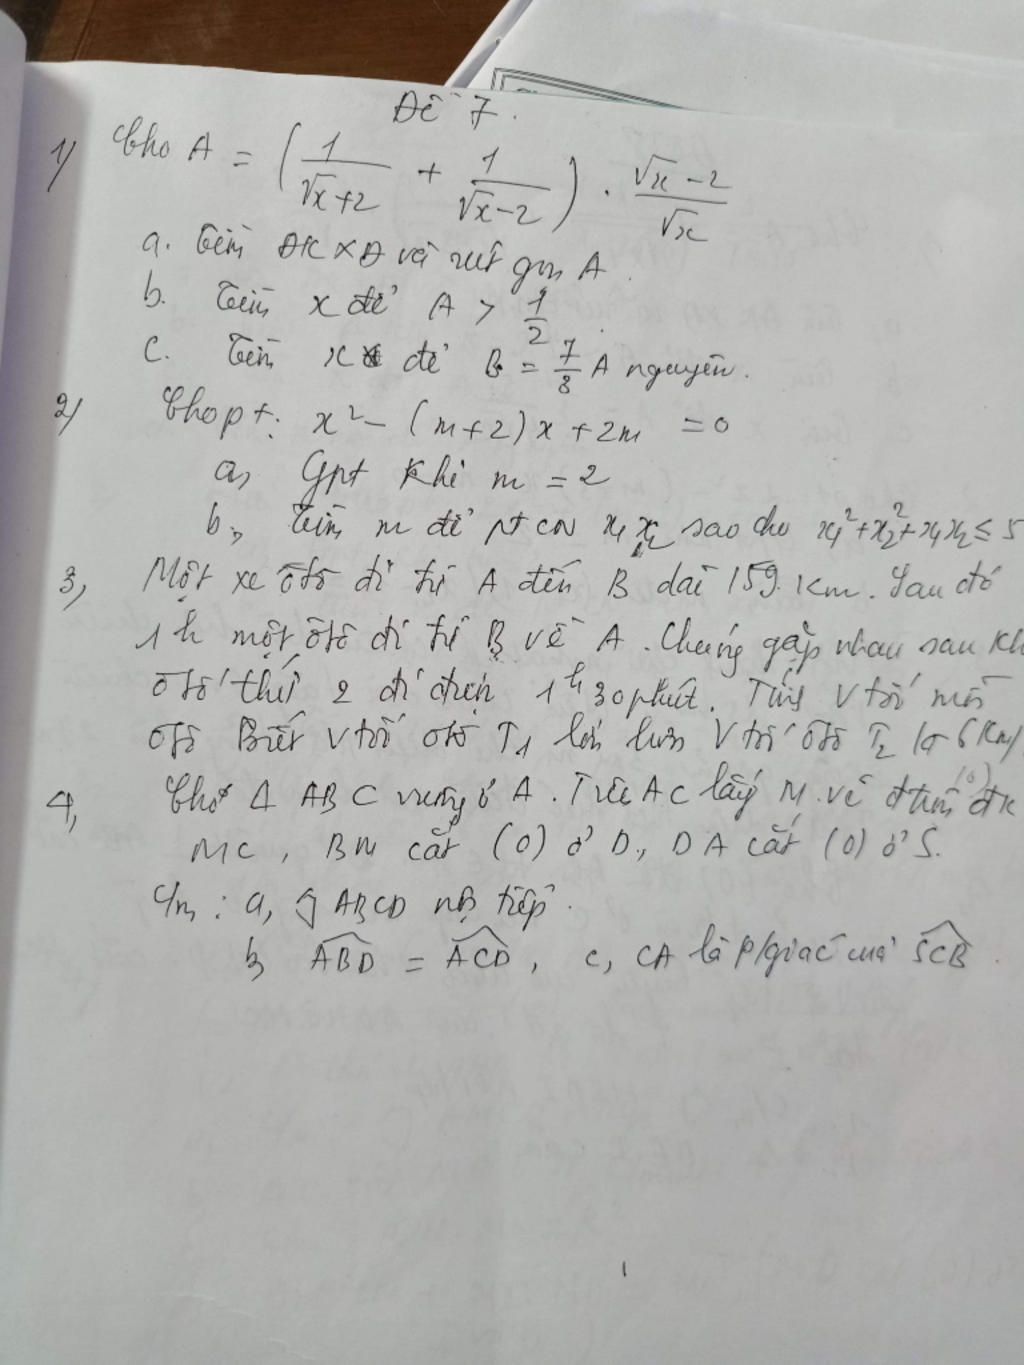 Đề 7.
1) Cho A = (1/(√x+2) + 1/(√x-2)) . (√x-2)/√x
a. Tìm ĐKXĐ và rút gọn A.
b. Tìm x để A > 1/2
c. Tìm x để B = 7/3 A nguyên.
2) Cho pt: x² - (m+2)x + 2m = 0
a, Gpt khi m = 2
b, Tìm m để pt có x₁ x₂ sao cho x₁² + x₂² + x₁x₂ ≤ 5
3, Một xe ôtô đi từ A đến B dài 159 km. Sau đó
1h một ôtô đi từ B về A. Chúng gặp nhau sau kh
ôtô thứ 2 đi được 1h 30 phút. Tính Vtốc mỗi
ôtô Biết Vtốc ôtô T₁ lớn hơn Vtốc ôtô T₂ là 6 km/
4, Cho Δ ABC vuông ở A. Trên AC lấy M. vẽ đtròn (O) đk
MC, BM cắt (O) ở D, DA cắt (O) ở S.
C/m: a, ◊ ABCD nội tiếp.
b, ABD = ACD, c, CA là p/giác của SCB.